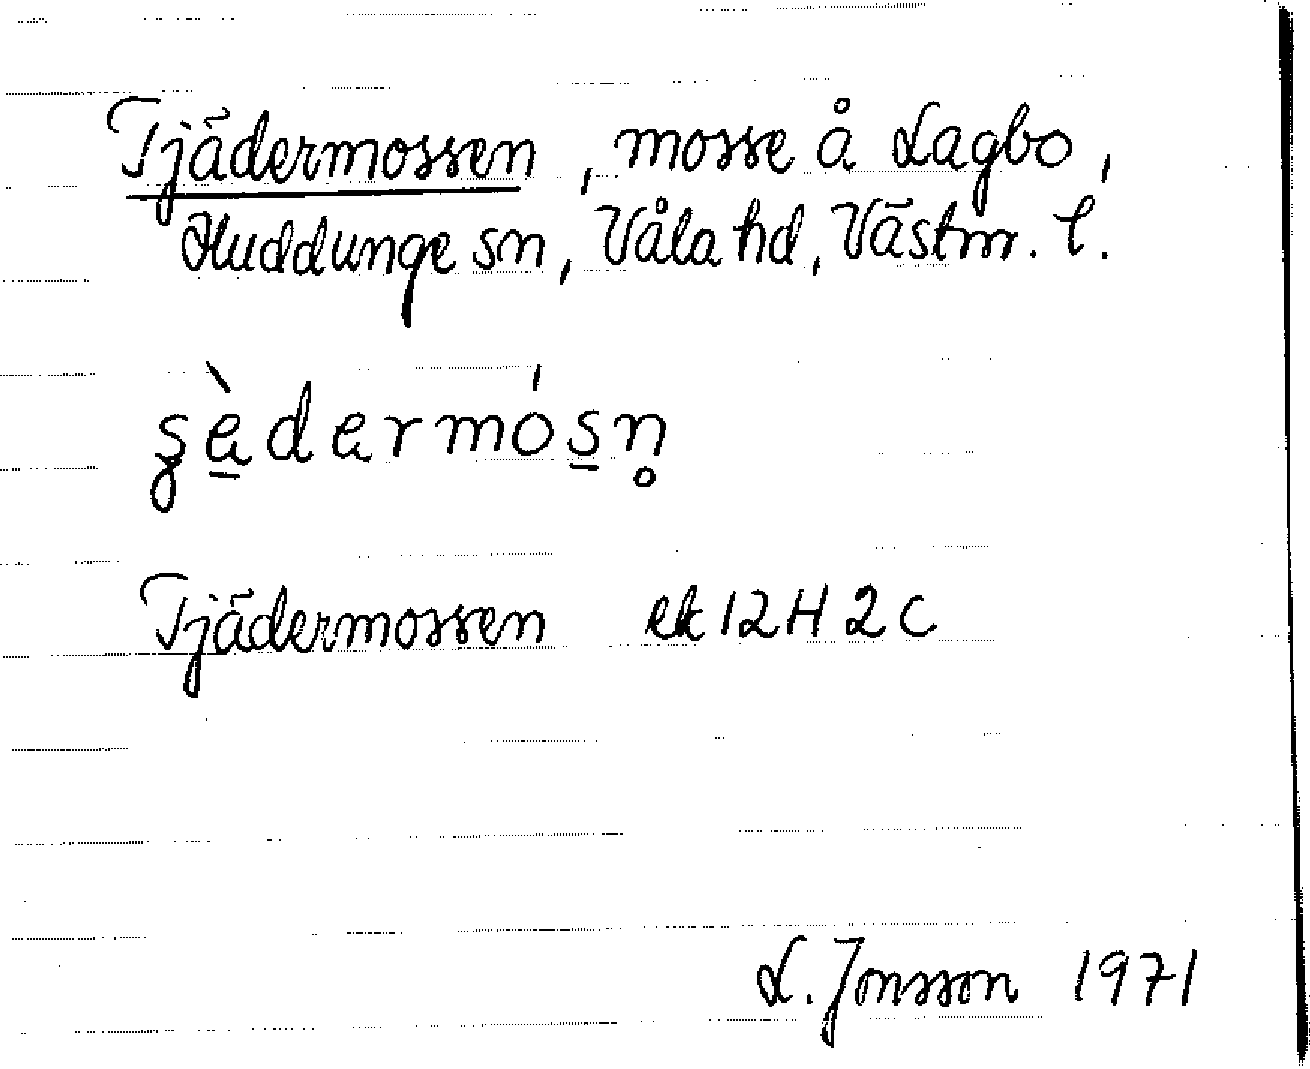 Tjädermossen, mosse å Lagbo,
Huddunge sn, Våla hd, Västm. l.
ʂè̠dermós̠n̥
Tjädermossen ek 12H 2c
L. Jonsson 1971